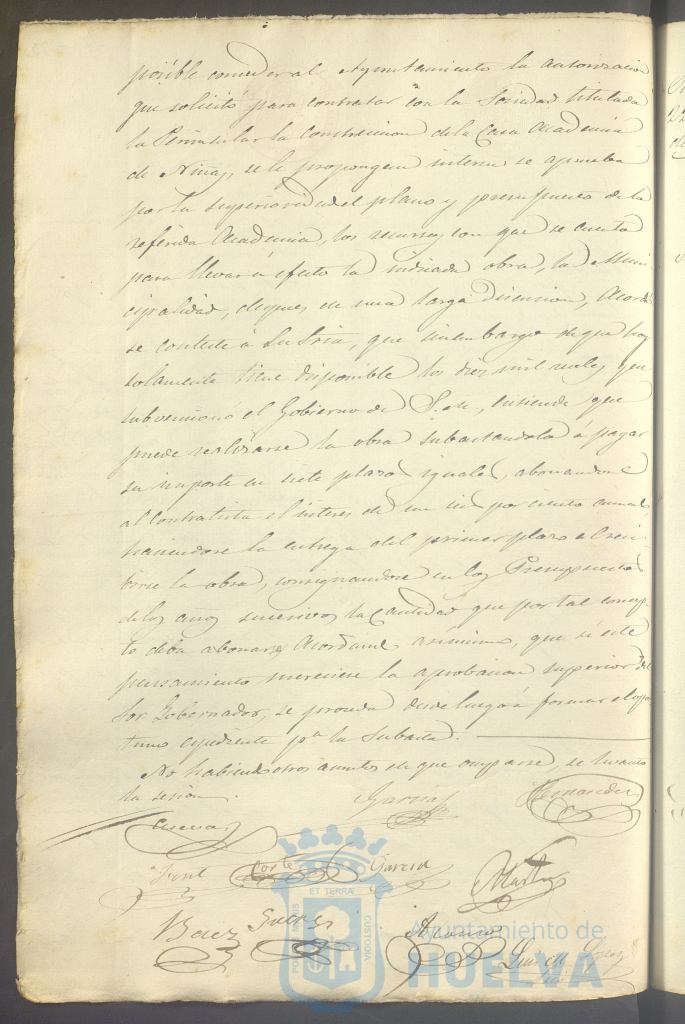 posible conceder al Ayuntamiento la autorizacion
que solicitó para contratar con la Sociedad titulada
la Peninsular la construccion de la Casa Academia
de Niñas, se le propongan interin se aprueba
por la superioridad el plano y presupuesto de la
referida Academia, los recursos con que se cuenta
para llevar á efecto la indicada obra, la Muni-
cipalidad, despues de una larga discusion, Acordó
se conteste á Su Sria, que sin embargo de que hoy
solamente tiene disponible los diez mil reales que
subvencionó el Gobierno de S. M., entiende que
puede realizarse la obra subastandola á pagar
su importe en siete plazos iguales, abonandose
al contratista el interes de un seis por ciento anual,
haciendose la entrega del primer plazo al reci-
birse la obra, consignandose en los Presupuestos
de los años sucesivos la cantidad que por tal concep-
to deba abonarse. Acordaron asimismo, que si este
pensamiento mereciese la aprobacion superior del
Sor Gobernador, se proceda desde luego á formar el opor-
tuno espediente pa la subasta.
No habiendo otros asuntos de que ocuparse, se levantó
la sesion.
Garcia Hernandez
Cortes Garcia
Baez
Alonso
PORTUS MARIS ET TERRÆ CUSTODIA
Ayuntamiento de
HUELVA